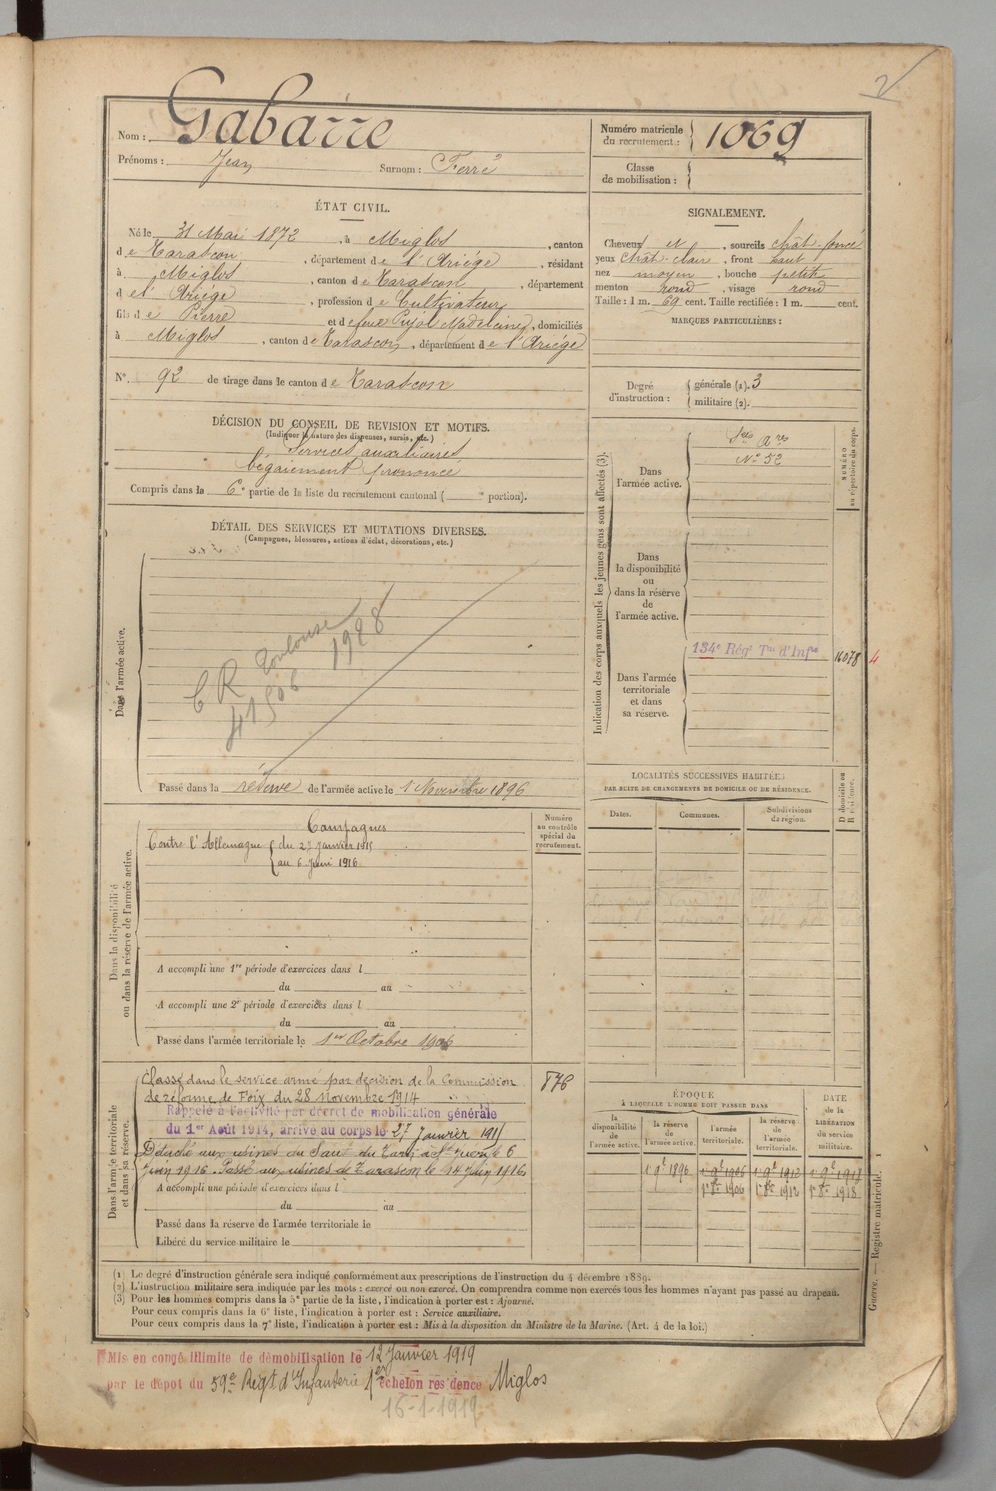 2
Nom : Gabarre
Prénoms : Jean Surnom : Ferré
Numéro matricule du recrutement : 1069
Classe de mobilisation :
ÉTAT CIVIL.
Né le 31 Mai 1872, à Miglos, canton
de Tarascon, département de l'Ariége, résidant
à Miglos, canton de Tarascon, département
d el' Ariége, profession de Cultivateur
fils de Pierre et de feue Pujol Madeleine, domiciliés
à Miglos, canton de Tarascon, département de l'Ariége
N° 92 de tirage dans le canton de Tarascon
DÉCISION DU CONSEIL DE REVISION ET MOTIFS.
(Indiquer la nature des dispenses, sursis, etc.)
Services auxiliaires
bégaiement prononcé
Compris dans la 6e partie de la liste du recrutement cantonal ( e portion).
SIGNALEMENT.
Cheveux N, sourcils chât. foncé
yeux chât. clair, front haut
nez moyen, bouche petite
menton rond, visage rond
Taille : 1 m. 69 cent. Taille rectifiée : 1 m. cent.
MARQUES PARTICULIÈRES :
Degré d'instruction : générale (1). 3
militaire (2).
DÉTAIL DES SERVICES ET MUTATIONS DIVERSES.
(Campagnes, blessures, actions d'éclat, décorations, etc.)
Dans l'armée active.
C R Toulouse
41506 1928
Passé dans la réserve de l'armée active le 1 Novembre 1896
Indication des corps auxquels les jeunes gens sont affectés (3).
NUMÉRO au répertoire du corps.
Dans l'armée active.
Sces Ares
N° 52
Dans la disponibilité ou dans la réserve de l'armée active.
Dans l'armée territoriale et dans sa réserve.
134e Régt Tal d'Infie
16078 4
LOCALITÉS SUCCESSIVES HABITÉES
PAR SUITE DE CHANGEMENTS DE DOMICILE OU DE RÉSIDENCE.
Dates. Communes. Subdivisions de région. D domicile ou R résidence.
Dans la disponibilité ou dans la réserve de l'armée active.
Numéro au contrôle spécial du recrutement.
Campagnes
Contre l'Allemagne du 27 Janvier 1915
au 6 Juin 1916
A accompli une 1re période d'exercices dans l
du au
A accompli une 2e période d'exercices dans l
du au
Passé dans l'armée territoriale le 1er Octobre 1906
Dans l'armée territoriale et dans sa réserve.
Classé dans le service armé par décision de la Commission
de réforme de Foix du 28 novembre 1914
876
Rappelé à l'activité par décret de mobilisation générale
du 1er Août 1914, arrivé au corps le 27 Janvier 1915
Détaché aux usines du Saut du Tarn à St Juery le 6
Juin 1916. Passé aux usines de Tarascon le 14 Juin 1916
A accompli une période d'exercices dans l
du au
Passé dans la réserve de l'armée territoriale le
Libéré du service militaire le
ÉPOQUE
À LAQUELLE L'HOMME DOIT PASSER DANS
la disponibilité de l'armée active. la réserve de l'armée active. l'armée territoriale. la réserve de l'armée territoriale. DATE de la LIBÉRATION du service militaire.
1 9e 1896 1 9e 1906 1 9e 1912 1 9e 1918
1er 8re 1906 1er 8re 1912 1er 8re 1918
(1) Le degré d'instruction générale sera indiqué conformément aux prescriptions de l'instruction du 4 décembre 1889.
(2) L'instruction militaire sera indiquée par les mots : exercé ou non exercé. On comprendra comme non exercés tous les hommes n'ayant pas passé au drapeau.
(3) Pour les hommes compris dans la 5e partie de la liste, l'indication à porter est : Ajourné.
Pour ceux compris dans la 6e liste, l'indication à porter est : Service auxiliaire.
Pour ceux compris dans la 7e liste, l'indication à porter est : Mis à la disposition du Ministre de la Marine. (Art. 4 de la loi.)
Guerre. — Registre matricule. 1
Mis en congé illimité de démobilisation le 12 Janvier 1919
par le dépot du 59e Régt d'Infanterie 1er échelon residence Miglos
16-1-1919